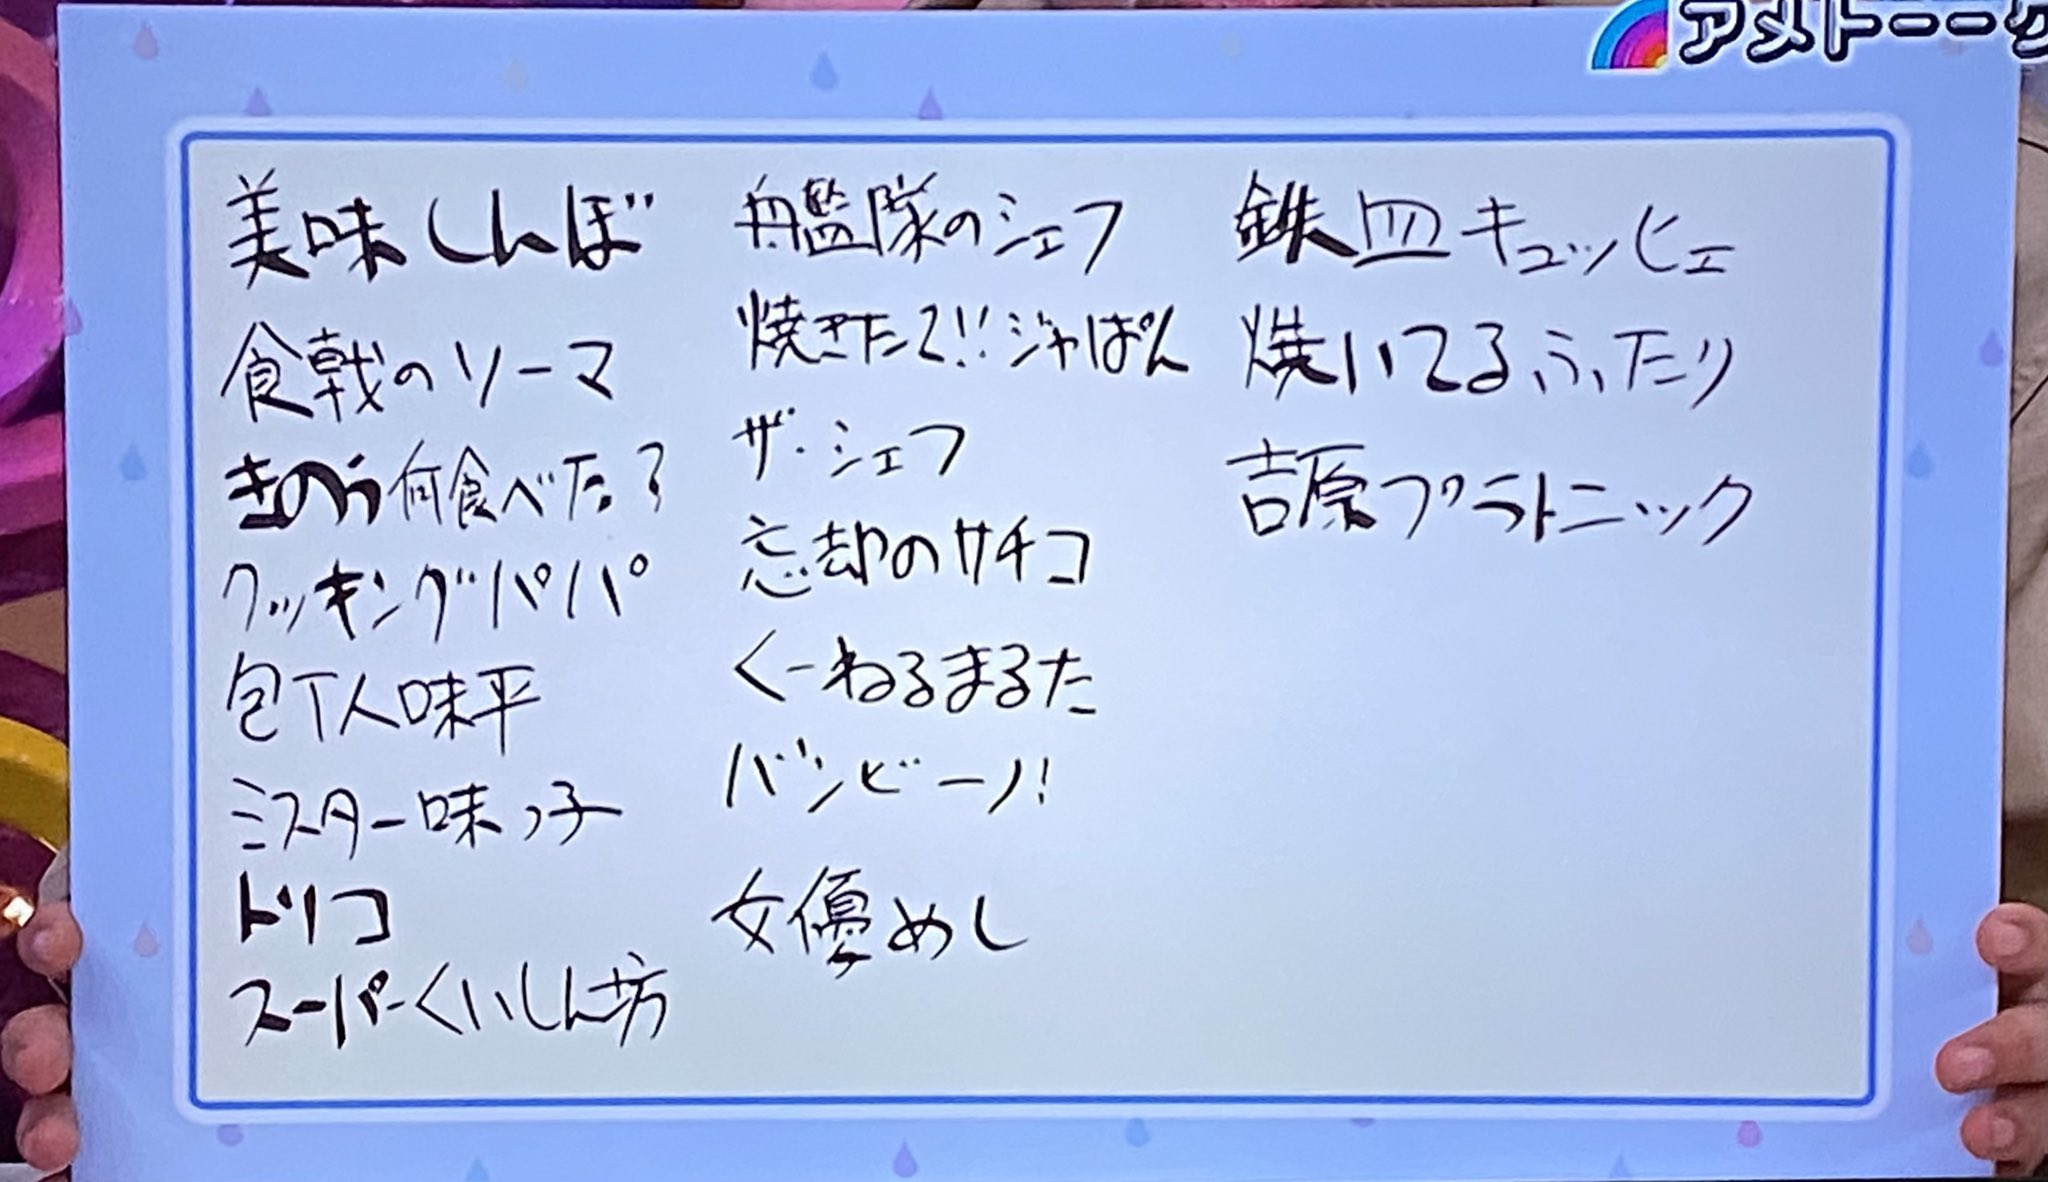 アメトーーク
美味しんぼ
食戟のソーマ
きのう何食べた?
クッキングパパ
包丁人味平
ミスター味っ子
トリコ
スーパーくいしん坊
艦隊のシェフ
焼きたて!!ジャぱん
ザ・シェフ
忘却のサチコ
くーねるまるた
バンビ~ノ!
女優めし
鉄皿キュッヒェ
焼いてるふたり
吉原プラトニック